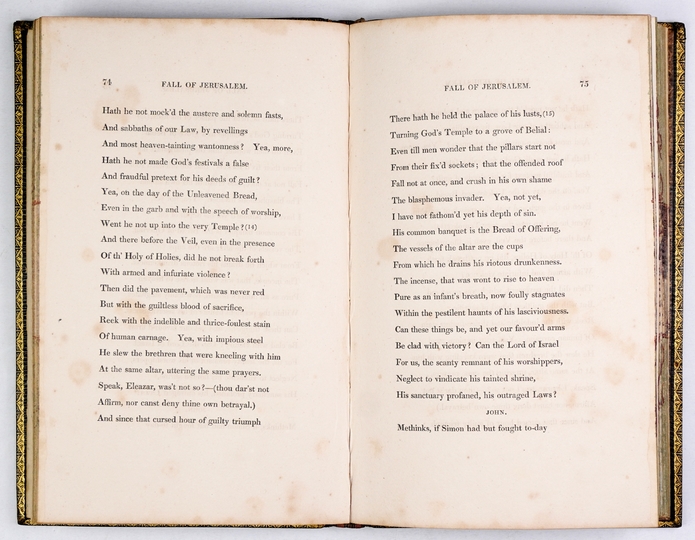 74
FALL OF JERUSALEM.
Hath he not mock'd the austere and solemn fasts,
And sabbaths of our Law, by revellings
And most heaven-tainting wantonness? Yea, more,
Hath he not made God's festivals a false
And fraudful pretext for his deeds of guilt?
Yea, on the day of the Unleavened Bread,
Even in the garb and with the speech of worship,
Went he not up into the very Temple?(14)
And there before the Veil, even in the presence
Of th' Holy of Holies, did he not break forth
With armed and infuriate violence?
Then did the pavement, which was never red
But with the guiltless blood of sacrifice,
Reek with the indelible and thrice-foulest stain
Of human carnage. Yea, with impious steel
He slew the brethren that were kneeling with him
At the same altar, uttering the same prayers.
Speak, Eleazar, was't not so?—(thou dar'st not
Affirm, nor canst deny thine own betrayal.)
And since that cursed hour of guilty triumph
FALL OF JERUSALEM.
75
There hath he held the palace of his lusts,(15)
Turning God's Temple to a grove of Belial:
Even till men wonder that the pillars start not
From their fix'd sockets; that the offended roof
Fall not at once, and crush in his own shame
The blasphemous invader. Yea, not yet,
I have not fathom'd yet his depth of sin.
His common banquet is the Bread of Offering,
The vessels of the altar are the cups
From which he drains his riotous drunkenness.
The incense, that was wont to rise to heaven
Pure as an infant's breath, now foully stagnates
Within the pestilent haunts of his lasciviousness.
Can these things be, and yet our favour'd arms
Be clad with victory? Can the Lord of Israel
For us, the scanty remnant of his worshippers,
Neglect to vindicate his tainted shrine,
His sanctuary profaned, his outraged Laws?
JOHN.
Methinks, if Simon had but fought to-day